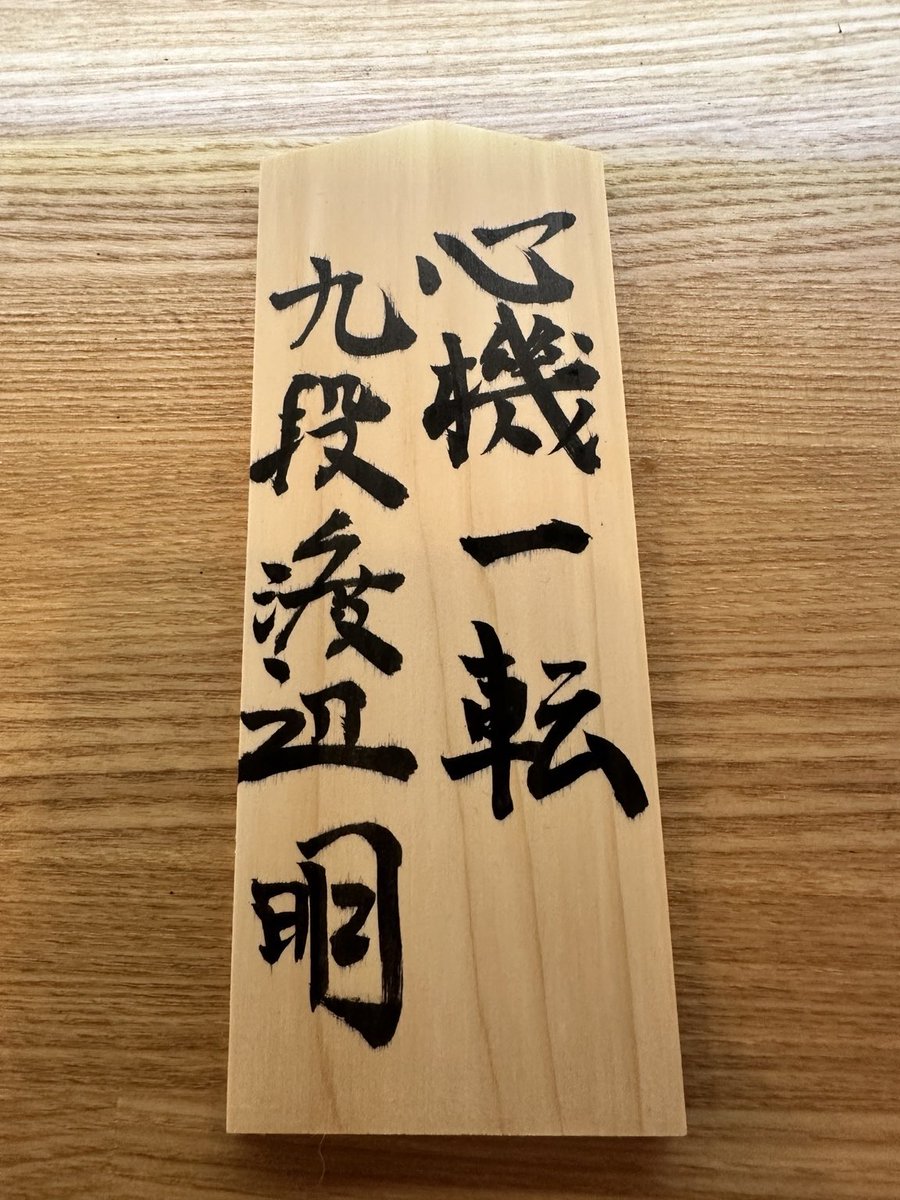 心機一転
九段渡辺明